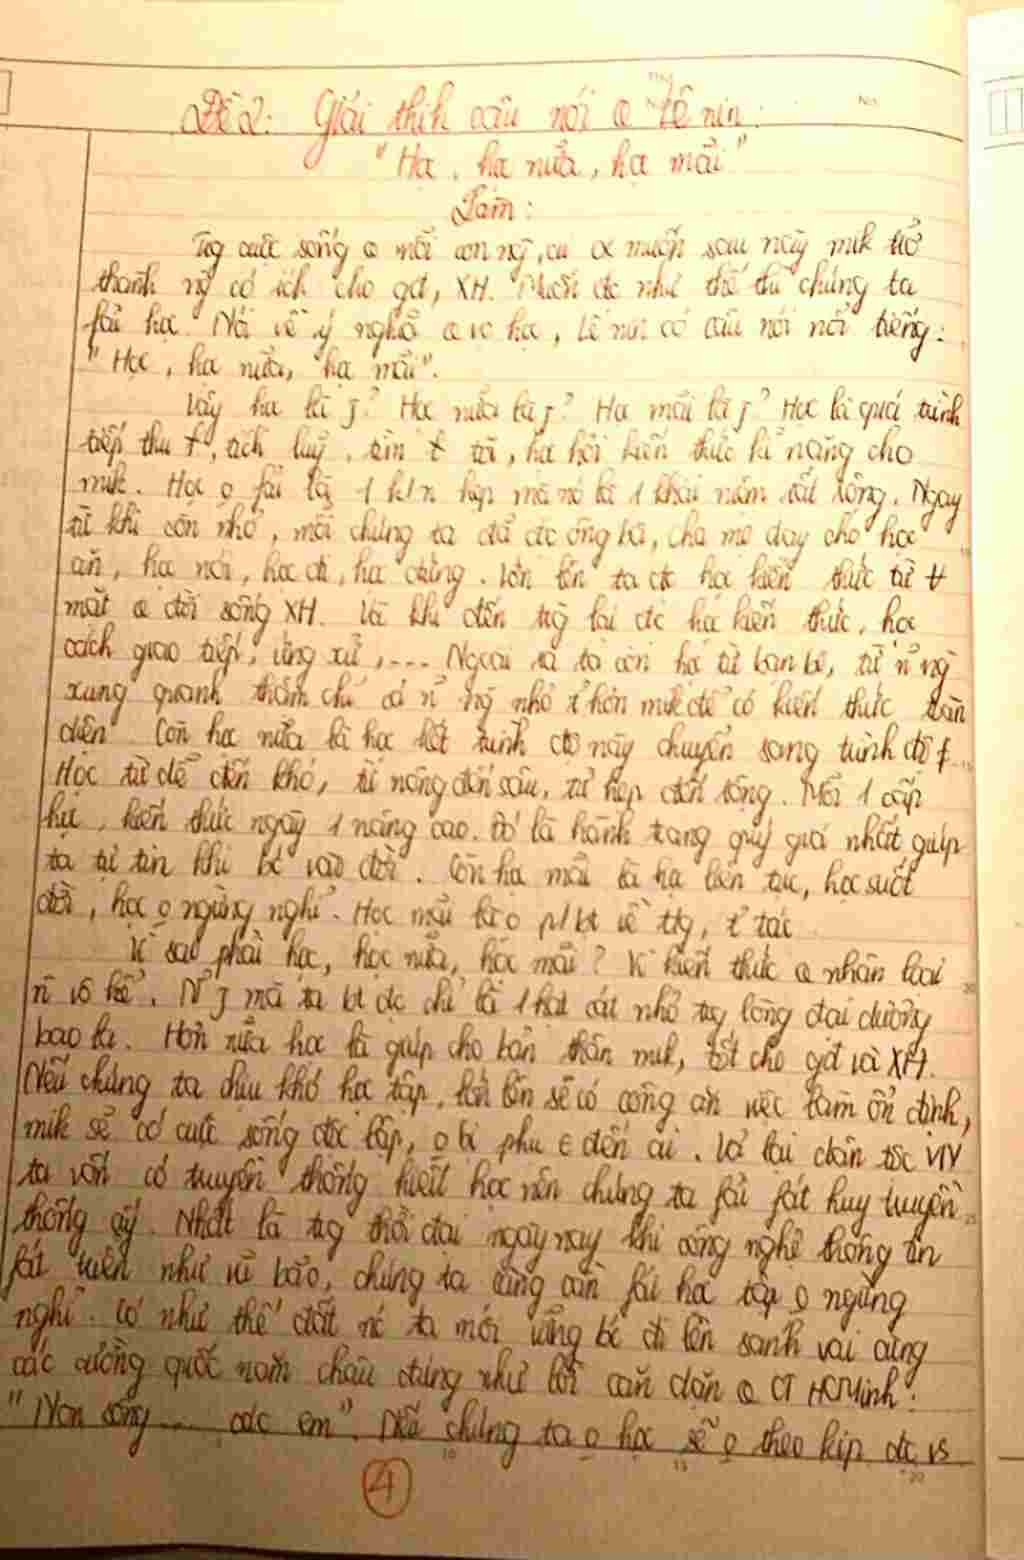 Đề 2: Giải thích câu nói Q Lê nin:
"Học, học nữa, học mãi"
Làm:
Tng cuộc sống Q mỗi con ng, ai cx muốn sau này mik trở
thành ng có ích cho gđ, XH. Muốn đc như thế thì chúng ta
fải học. Nói về ý nghĩa Q vc học, Lê nin có câu nói nổi tiếng:
"Học, học nữa, học mãi".
Vậy học là j? Học nữa là j? Học mãi là j? Học là quá trình
tiếp thu, tích luỹ, tìm tòi, học hỏi kiến thức kĩ năng cho
mik. Học o fải là 1 k/n hẹp mà nó là 1 khái niệm rất rộng. Ngay
từ khi còn nhỏ, mỗi chúng ta đã đc ông bà, cha mẹ dạy cho học
ăn, học nói, học đi, học đứng. Lớn lên ta đc học kiến thức từ
mặt Q đời sống XH. Và khi đến trg lại đc học kiến thức, học
cách giao tiếp, ứng xử,... Ngoài ra ta còn học từ bạn bè, từ n ng
xung quanh thậm chí cả n ng nhỏ t hơn mik để có kiến thức toàn
diện. Còn học nữa là học hết trình độ này chuyển sang trình độ
Học từ dễ đến khó, từ nông đến sâu, từ hẹp đến rộng. Mỗi 1 cấp
học, kiến thức ngày 1 nâng cao. Đó là hành trang quý giá nhất giúp
ta tự tin khi bc vào đời. Còn học mãi là học liên tục, học suốt
đời, học o ngừng nghỉ. Học mãi là o p/bt về tg, t tác
Vì sao phải học, học nữa, học mãi? Vì kiến thức Q nhân loại
n vô kể. N~ j mà ta bt đc chỉ là 1 hạt cát nhỏ tng lòng đại dương
bao la. Hơn nữa học là giúp cho bản thân mik, tốt cho gđ và XH.
Nếu chúng ta chịu khó học tập, lớn lên sẽ có công ăn việc làm ổn định,
mik sẽ có cuộc sống độc lập, o bị phụ € đến ai. Vả lại dân tộc VN
ta vốn có truyền thống hiếu học nên chúng ta fải fát huy truyền
thống ấy. Nhất là tng thời đại ngày nay khi công nghệ thông tin
fát triển như vũ bão, chúng ta càng cần fải học tập o ngừng
nghỉ. Có như thế đất nc ta mới vững bc đi lên sánh vai cùng
các cường quốc năm châu đúng như lời căn dặn Q CT HCMinh:
"Non sông ... các em". Nếu chúng ta o học sẽ o theo kịp đc vs
4